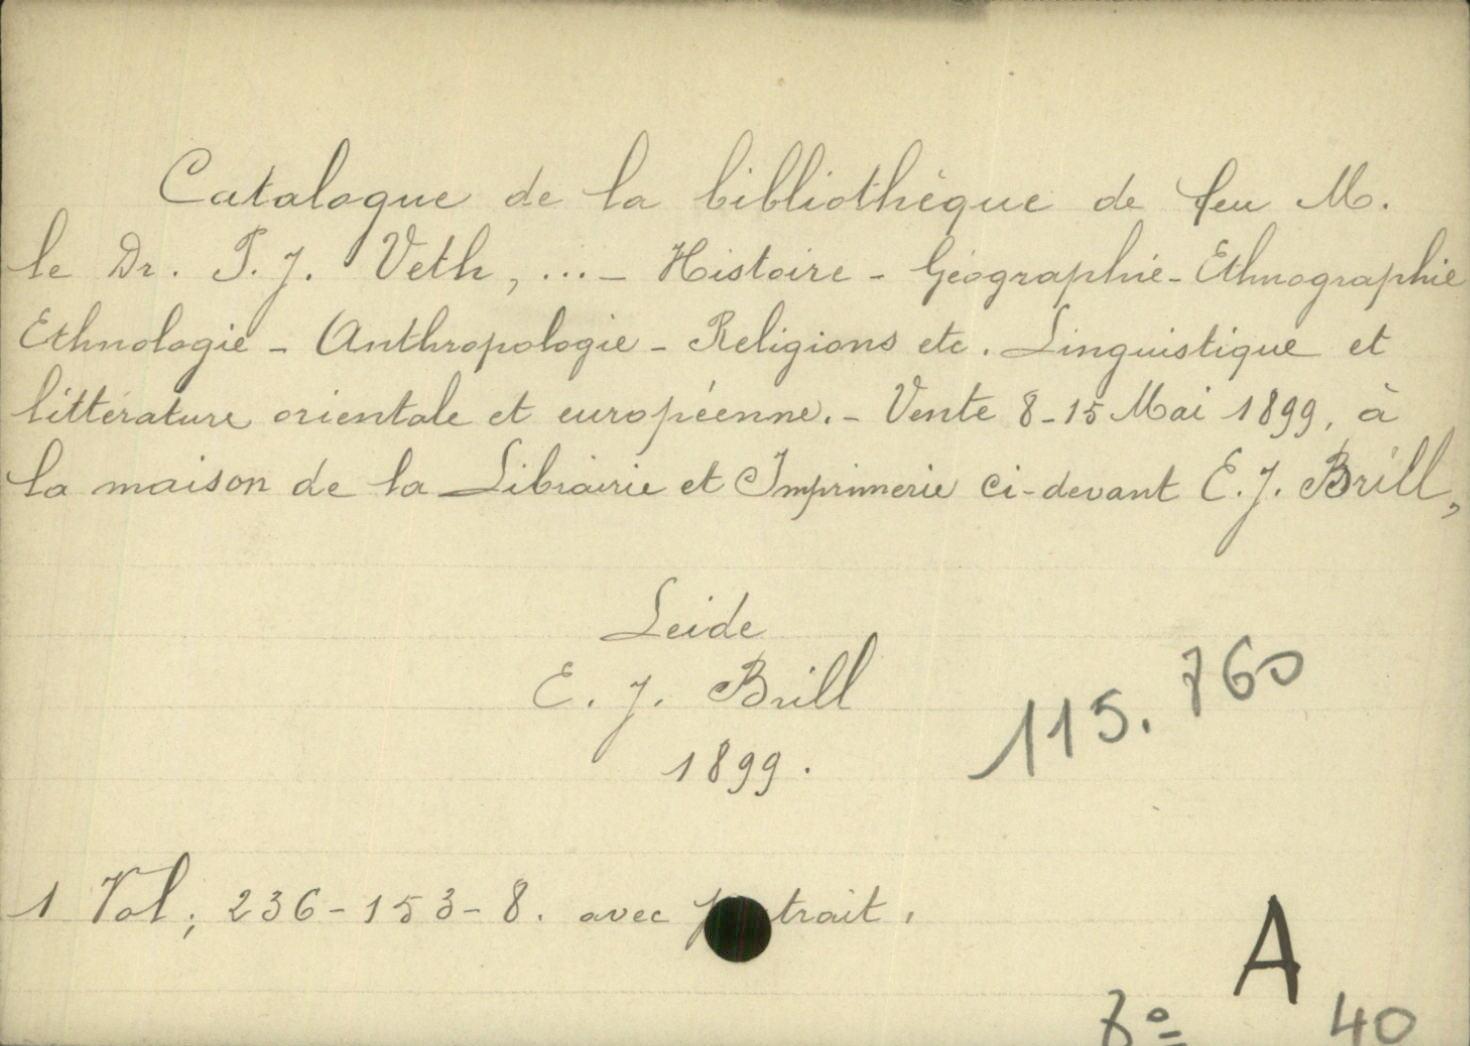 Catalogue de la bibliothèque de feu M.
le Dr. P. J. Veth, ... - Histoire - Géographie - Ethnographie
Ethnologie - Anthropologie - Religions etc. Linguistique et
littérature orientale et européenne. - Vente 8-15 Mai 1899, à
la maison de la Librairie et Imprimerie ci-devant E. J. Brill,
Leide
E. J. Brill
1899.
115.760
1 Vol; 236-153-8. avec p trait.
A
8° 40